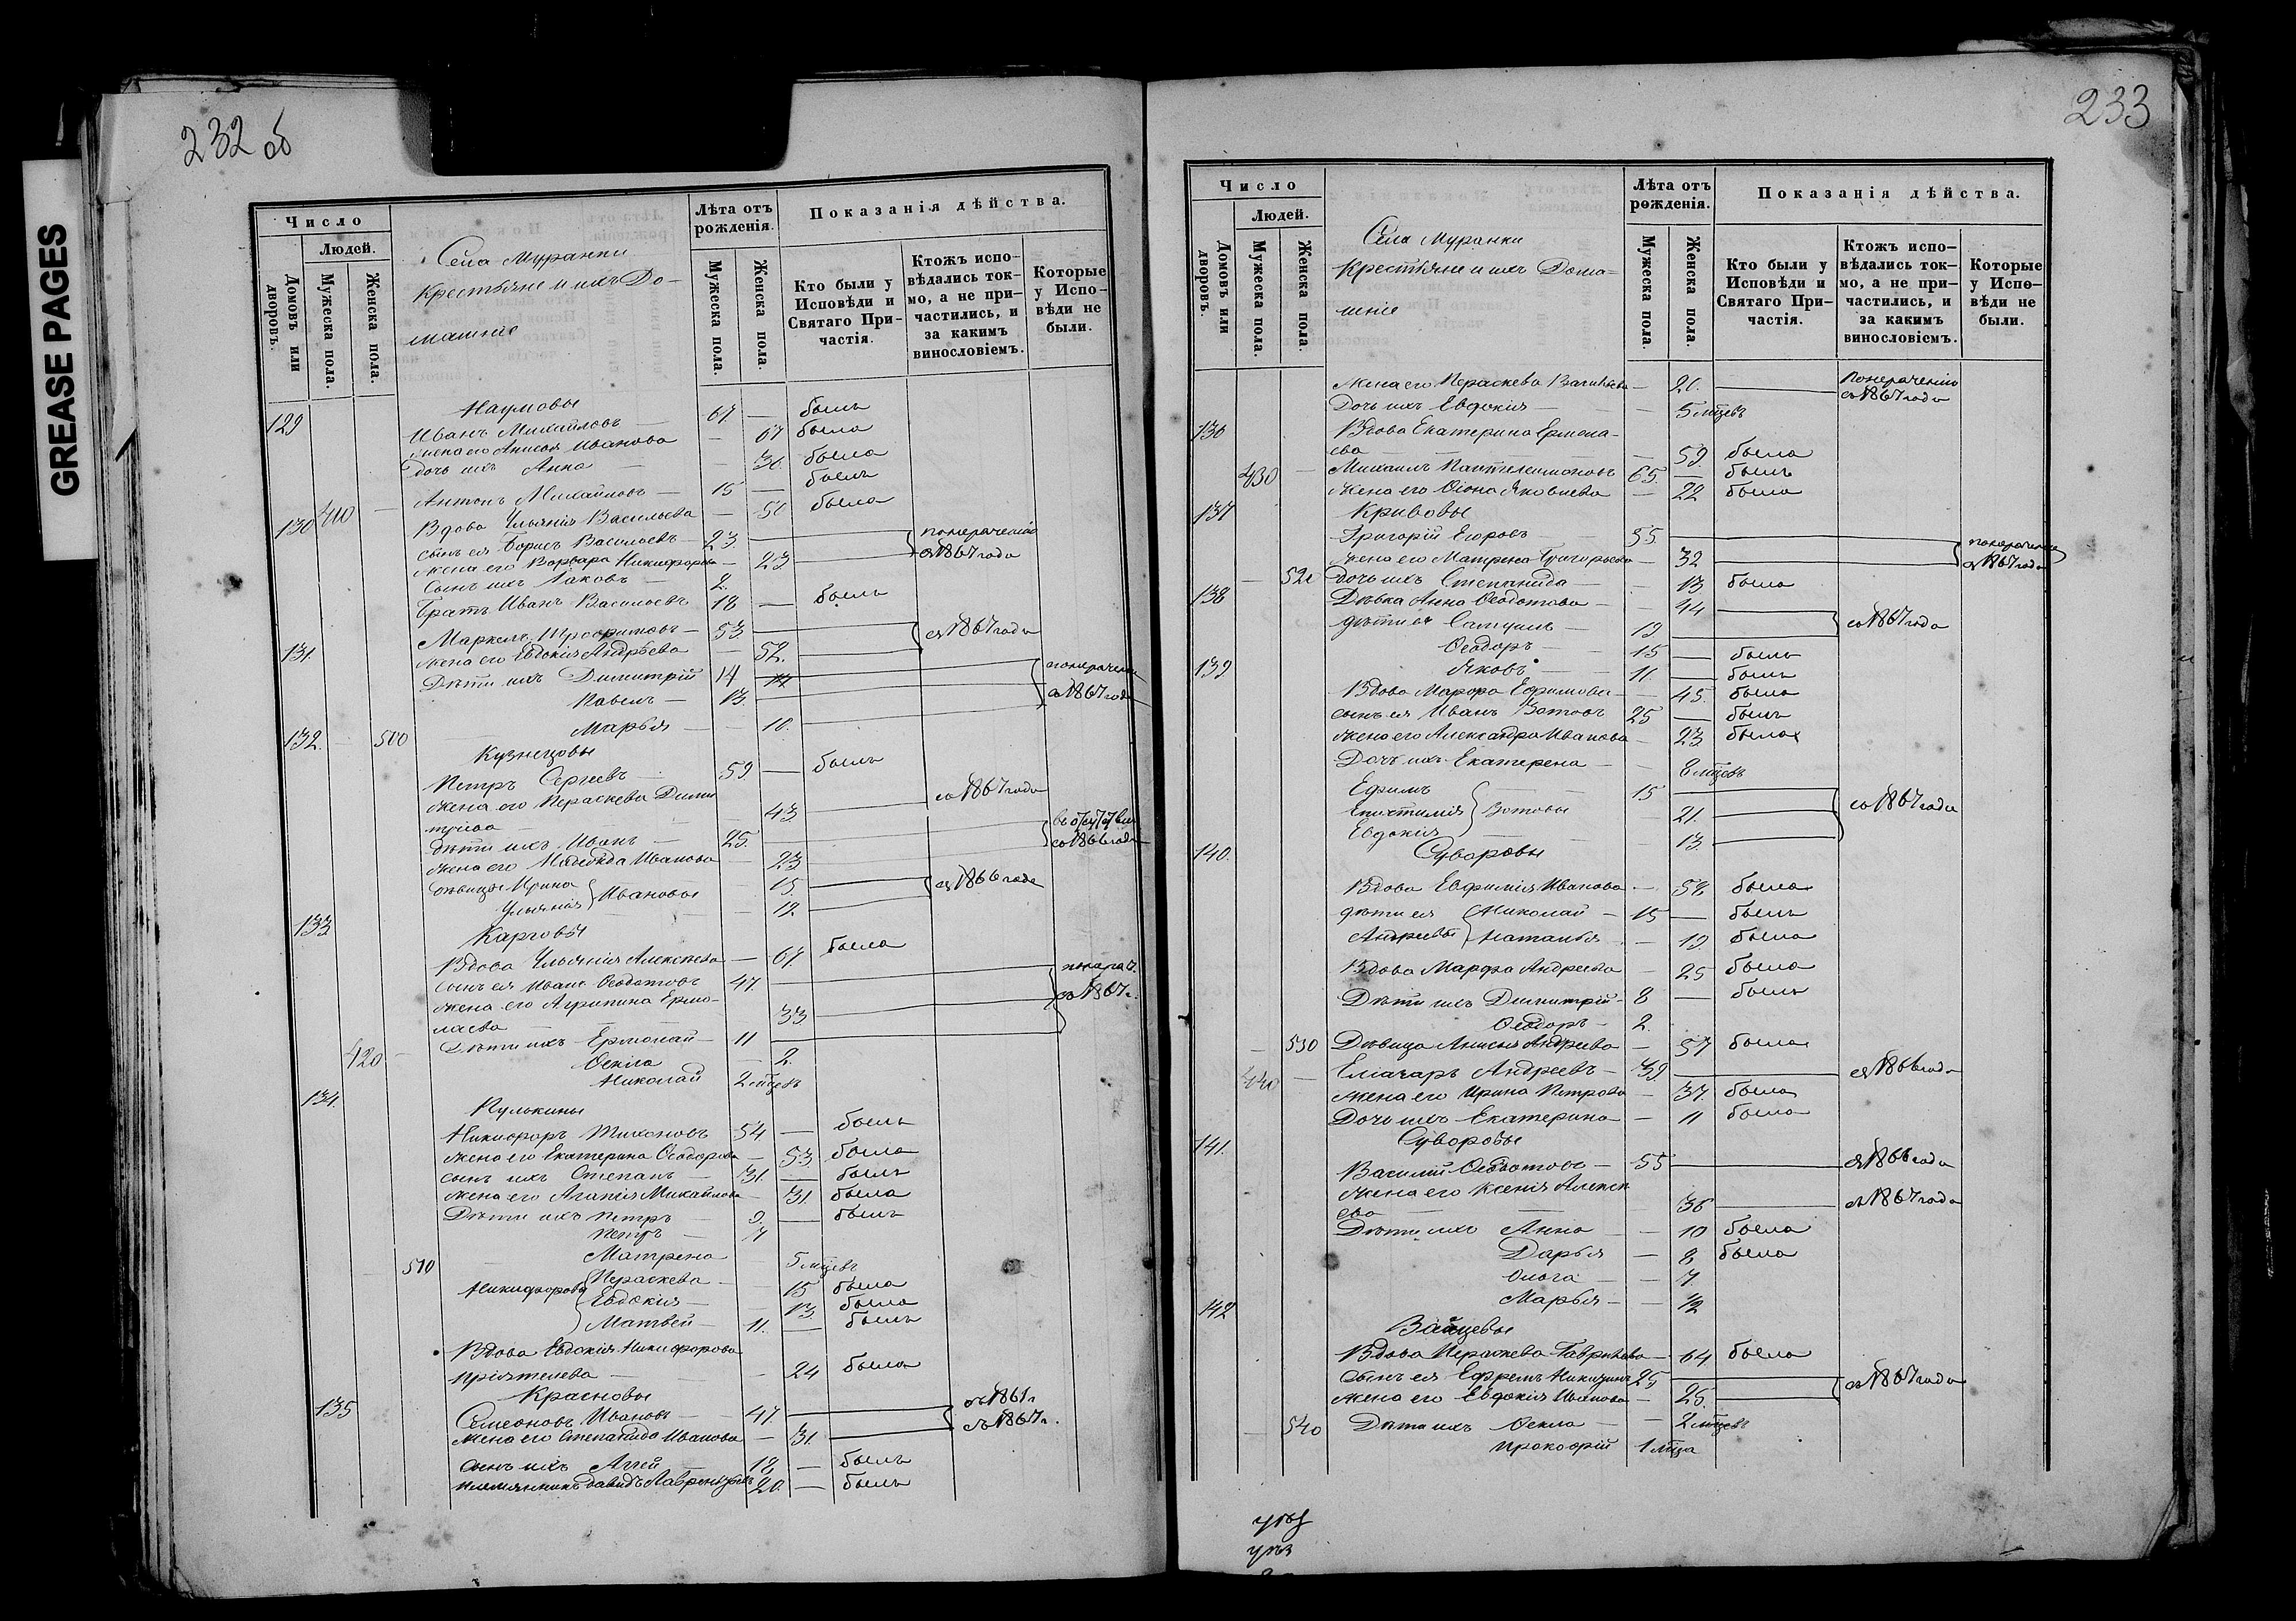 GREASE PAGES
232 об
Число
Людей.
Домовъ или дворовъ.
Мужеска пола.
Женска пола.
Села Муранки
Крестьяне и ихъ До-
машніе
Лѣта отъ рожденія.
Мужеска пола.
Женска пола.
Показанія дѣйства.
Кто были у Исповѣди и Святаго Причастія.
Ктожъ исповѣдались токмо, а не причастились, и за какимъ винословіемъ.
Которые у Исповѣди не были.
129 Наумовы
Иванъ Михайловъ — 67 — былъ
жена его Анисья Иванова — 67 была
Дочь ихъ Анна — 30. была
410 Антонъ Михайловъ — 15 — былъ
130 Вдова Ульянія Васильева — 50 была
сынъ ея Борисъ Васильевъ — 23. понерачению
жена его Варвара Никифорова — 23 съ 1867 года
Сынъ ихъ Іаковъ — 2.
Братъ Иванъ Васильевъ 18 — былъ
131. Маркелъ — 53 съ 1867 года
жена его Евдокія Андрѣева — 52.
Дѣти ихъ Димитрій 14
Павелъ — 13. съ 1867 года
500 Марья — 10.
132. Кузнецовы
Петръ Сергѣевъ — 59 — былъ
жена его Параскева Дими
тріева — 43 со 1867 года
дѣти ихъ Иванъ — 25.
жена его Надежда Иванова — 23 со 1866 года
дѣвицы Ирина } Ивановы 15. съ 1866 года
Ульянія 12.
133 Карповы
Вдова Ульянія Алексѣева — 67. была
сынъ ея Иванъ Ѳеодотовъ 47.
жена его Агрипина Ермо-
лаева — 33. со 1867 г.
Дѣти ихъ Ермолай — 11
420 Ѳекла — 2.
Николай 2 мѣцевъ
134. Пулькины
Никифоръ Тихоновъ 54 — былъ
жена его Екатерина Ѳеодорова — 53 была
сынъ ихъ Степанъ — 31. — былъ
жена его Агапія Михайлова — 31 была
Дѣти ихъ Петръ — 9. — былъ
Петръ — 7
Матрена 5 мѣцевъ
510 Никифоровы { Параскева — 15 была
Евдокія — 13. была
Матвей — 11. — былъ
Вдова Евдокія Никифорова
Пріятелева — 24 была
135 Красновы
Семеоновъ Ивановъ — 47. съ 1861 г
жена его Степанида Иванова — 31. съ 1867 г.
сынъ ихъ Аггей — 18 — былъ
племянникъ Давидъ Лаврентьевъ 20. — былъ
233
Число
Людей.
Домовъ или дворовъ.
Мужеска пола.
Женска пола.
Села Муранки
Крестьяне и ихъ Дома-
шніе
Лѣта отъ рожденія.
Мужеска пола.
Женска пола.
Показанія дѣйства.
Кто были у Исповѣди и Святаго Причастія.
Ктожъ исповѣдались токмо, а не причастились, и за какимъ винословіемъ.
Которые у Исповѣди не были.
жена его Параскева Васильева — 20. Понерачению
съ 1867 года
Дочь ихъ Евдокія — 5 мѣцевъ
136 Вдова Екатерина Ермола-
ева — 59. была
430 Михаилъ Пантелеимоновъ 65. — былъ
жена его Яковлева — 22 была
137 Кривовы
Григорій Егоровъ — 55
жена его Матрена Григорьева — 32 съ 1867 года
520 Дочь ихъ Степанида — 13 была
138 Дѣвка Анна Ѳеодотова — 44 со 1867 года
дѣти ея Самуилъ — 19
Ѳеодоръ — 15 — былъ
Яковъ — 11. — былъ
139 Вдова Марфа Ефимова — 45. была
сынъ ея Иванъ Зотовъ 25 — былъ
жена его Александра Иванова — 23 была
Дочь ихъ Екатерена — 8 мѣцевъ
Ефимъ } Зотовы 15 со 1867 года
Епистимія 21.
Евдокія 13.
140. Суворовы
Вдова Евфимія Иванова — 52 была
дѣти ея { Николай — 15 — былъ
Андреевы Наталья — 19. была
Вдова Марфа Андреева — 25 была
Дѣти ихъ Димитрій — 8 — былъ
Ѳеодоръ — 2.
530 Дѣвица Анисья Андреева — 57 была
440 Еліазаръ Андреевъ — 39. съ 1866 года
жена его Ирина Петрова — 37 была
Дочь ихъ Екатерина — 11 была
141. Суворовы
Василій Ѳеодотовъ — 55 съ 1866 года
жена его Ксенія Алексѣ
ева — 36 съ 1867 года
Дѣти ихъ Анна — 10 была
Дарья — 8 была
Ольга — 7.
Марья — 1/2
142 Зайцевы
Вдова Параскева Гаврилова — 64 была
Сынъ ея Ефремъ Никитинъ 25 съ 1867 года
жена его Евдокія Иванова — 25.
540 Дѣти ихъ Ѳекла — 2 мѣцевъ
Прокофій 1 мѣца